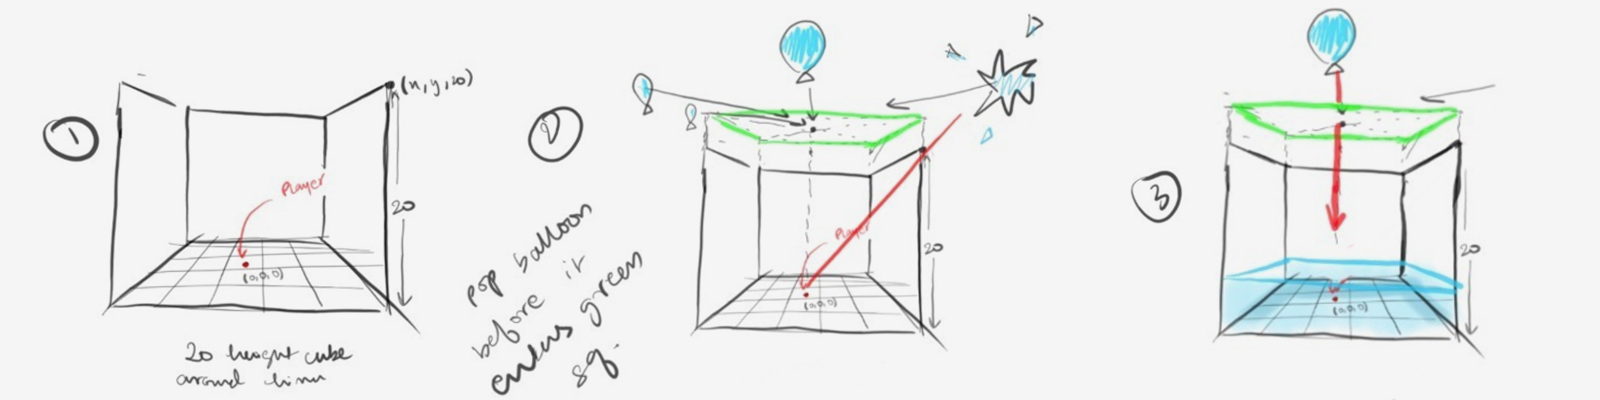 1
(x,y,20)
Player
20
(0,0,0)
20 height cube
around him
2
pop balloon
before it
enters green
sq.
Player
20
(0,0,0)
3
20
(0,0,0)